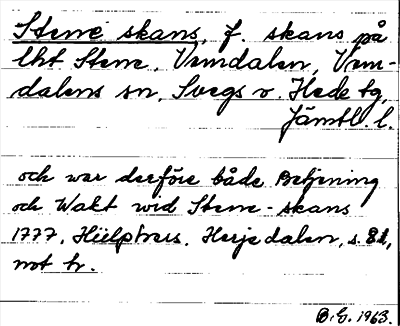 Stene skans, f. skans på
lht Stene, Vemdalen, Vem-
dalens sn, Svegs o. Hede tg,
Jämtl. l.
och war derföre både Betjening
och Wakt wid Stene-skans
1777, Hülphers, Herjedalen, s. 81,
not tr.
B.G. 1963.